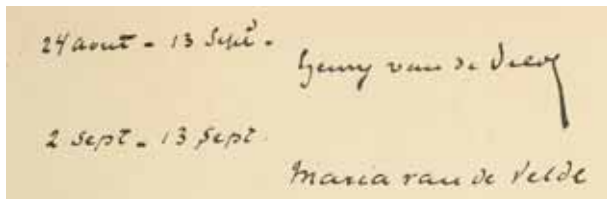 24 aout - 13 Sept -
Henry van de Velde
2 Sept - 13 Sept.
Maria van de Velde